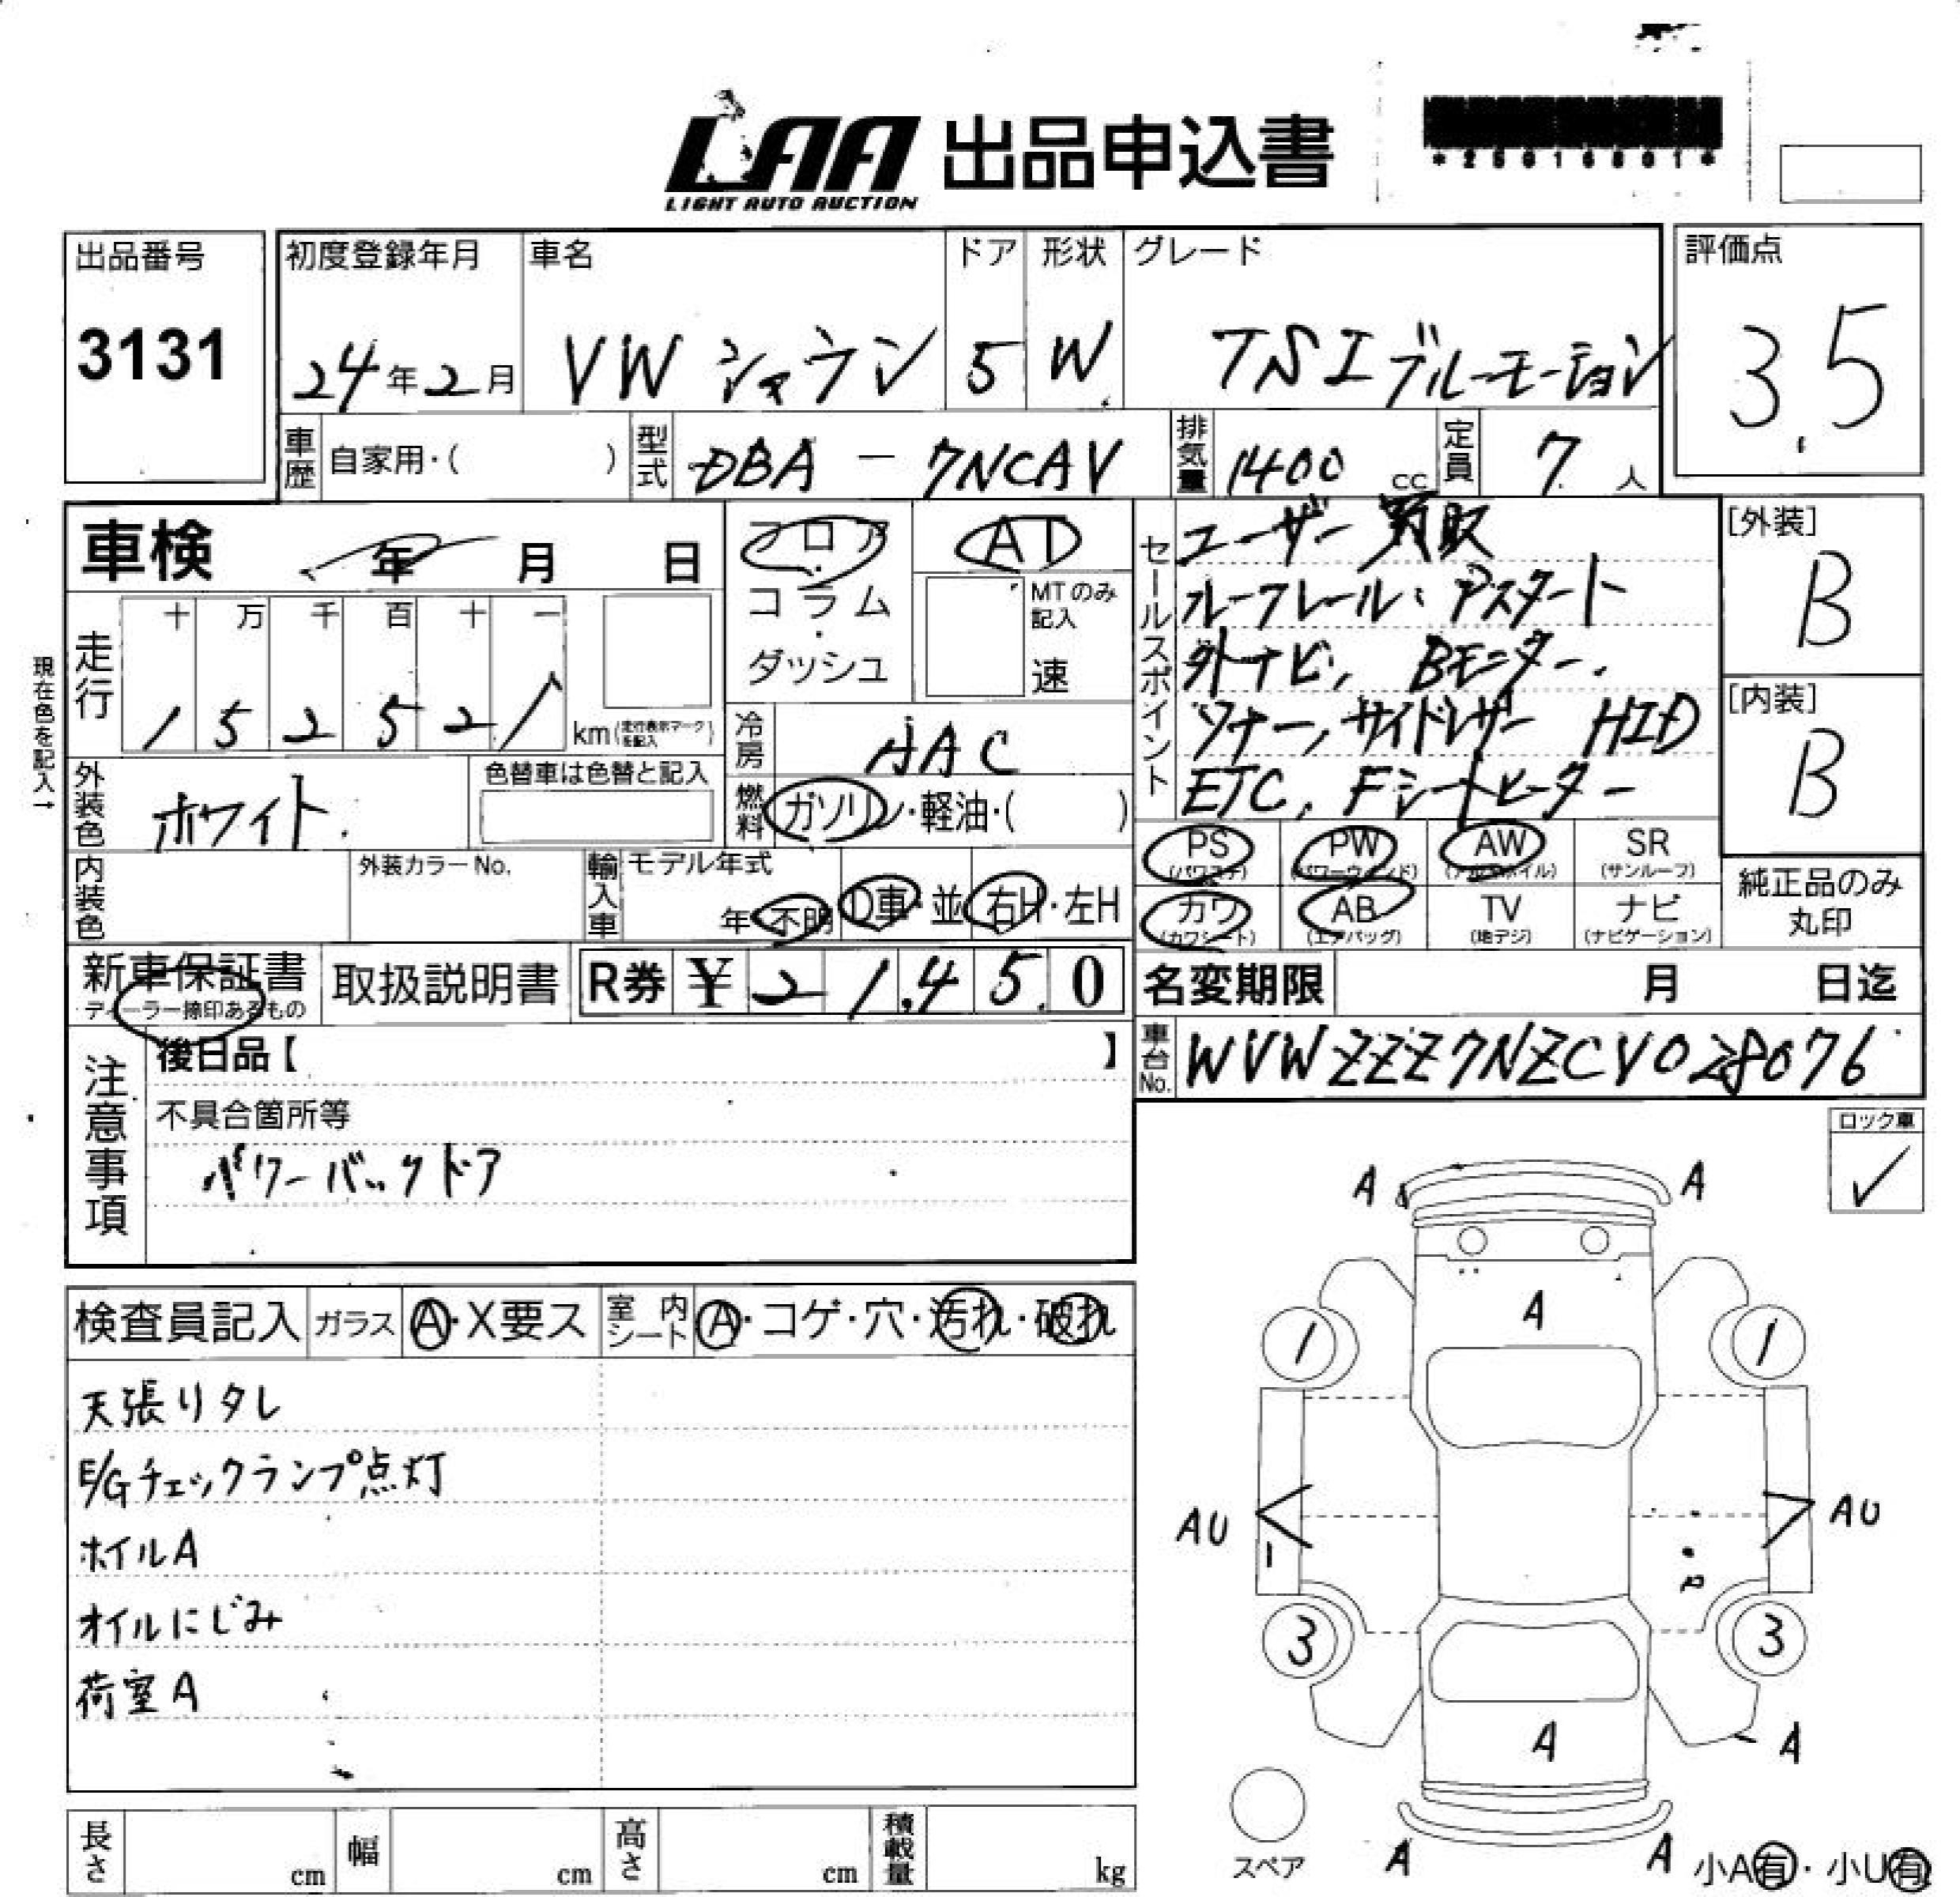 LAA 出品申込書
LIGHT AUTO AUCTION
*25016801*
出品番号
3131
初度登録年月
24年2月
車名
VW シャラン
ドア
5
形状
W
グレード
TSIブルーモーション
評価点
3.5
車歴 自家用・( )
型式 DBA - 7NCAV
排気量 1400 cc
定員 7 人
車検 年 月 日
フロア・コラム・ダッシュ
AT
MTのみ記入
速
セールスポイント
ユーザー買取
ルーフレール、Pスタート
外ナビ、Bモニター.
ソナー、サイドレザー HID
ETC、Fシートヒーター
[外装]
B
[内装]
B
現在色を記入→
走行
十 万 千 百 十 一
1 5 2 5 2 1
km(走行表示マークを記入)
冷房 AAC
燃料 ガソリン・軽油・( )
外装色 ホワイト.
色替車は色替と記入
内装色
外装カラーNo.
輸入車
モデル年式
年 不明
D車・並
右H・左H
PS
(パワステ)
PW
(パワーウィンド)
AW
(アルミホイル)
SR
(サンルーフ)
カワ
(カワシート)
AB
(エアバッグ)
TV
(地デジ)
ナビ
(ナビゲーション)
純正品のみ
丸印
新車保証書
ディーラー捺印あるもの
取扱説明書
R券 ¥ 2 1,4 5 0
名変期限 月 日迄
車台No. WVWZZZ7NZCV028076
注意事項
後日品【 】
不具合箇所等
パワーバックドア
ロック車
✓
検査員記入
ガラス A・X要ス
室内シート A・コゲ・穴・汚れ・破れ
天張りタレ
E/Gチェックランプ点灯
ホイルA
オイルにじみ
荷室A
A A
A
1 1
AU AU
3 3
A A
スペア
A A
小A有・小U有
長さ cm
幅 cm
高さ cm
積載量 kg